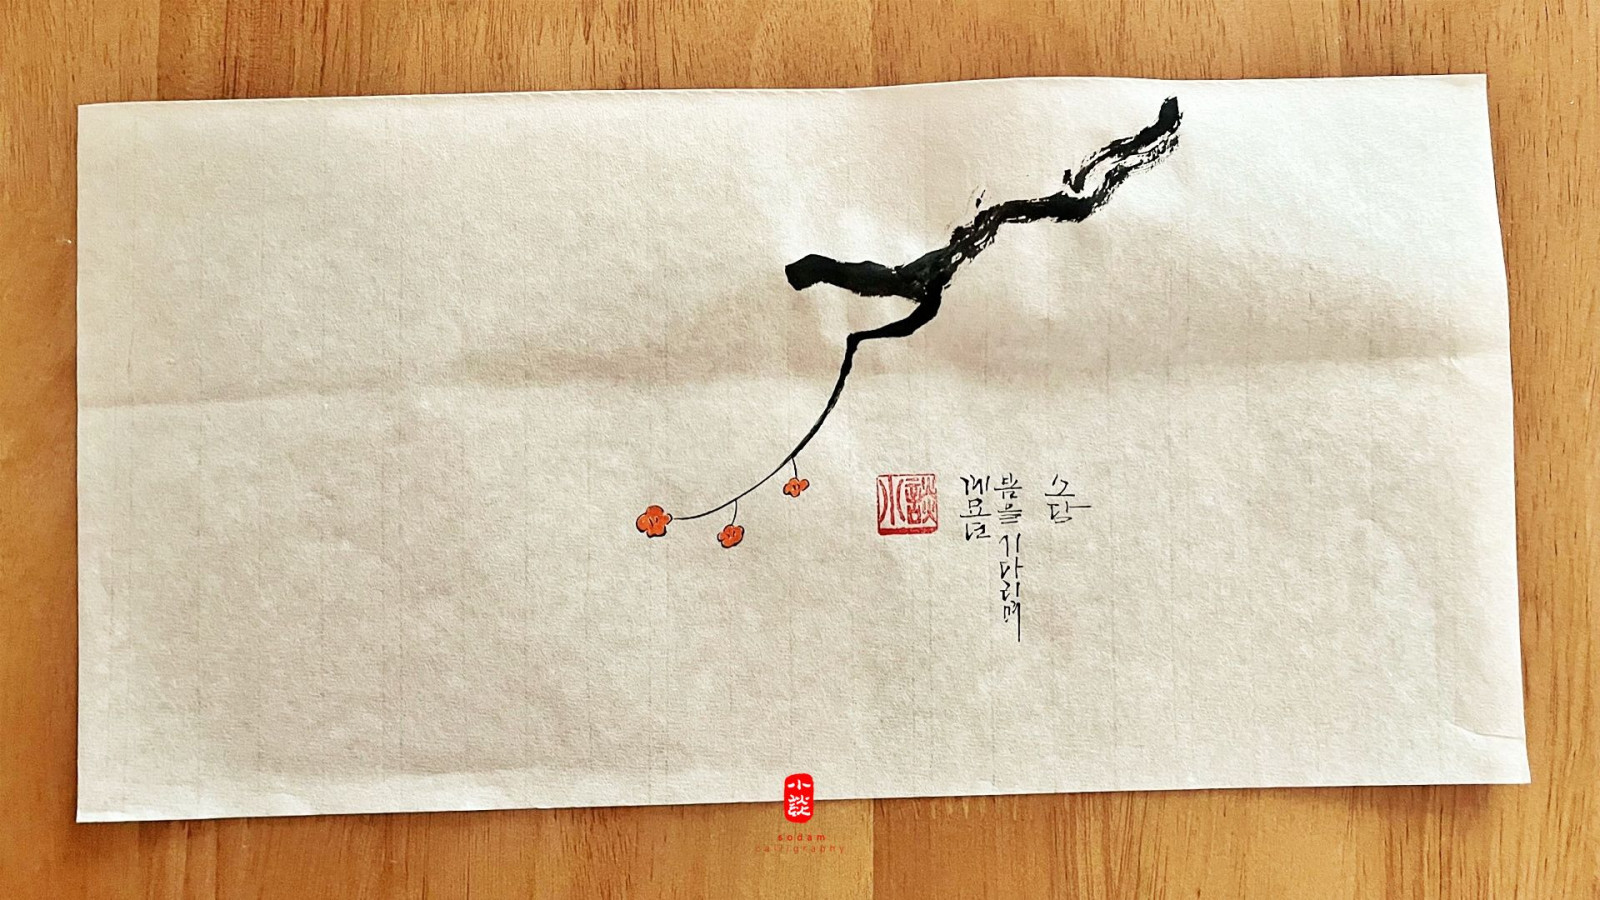 계묘년
봄을 기다리며
소담
小談
小談
sodam
calligraphy